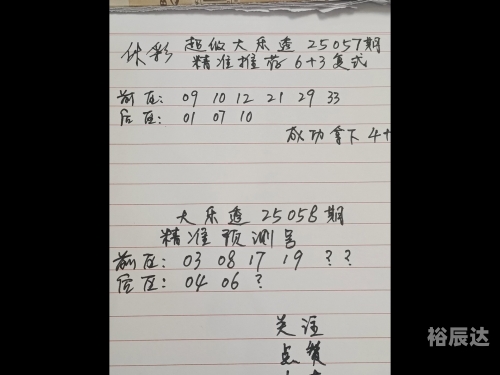 体彩 超级大乐透 25057期
精准推荐 6+3复式
前区: 09 10 12 21 29 33
后区: 01 07 10
成功拿下 4+
大乐透 25058期
精准预测号
前区: 03 08 17 19 ? ?
后区: 04 06 ?
关注
点赞
裕辰达